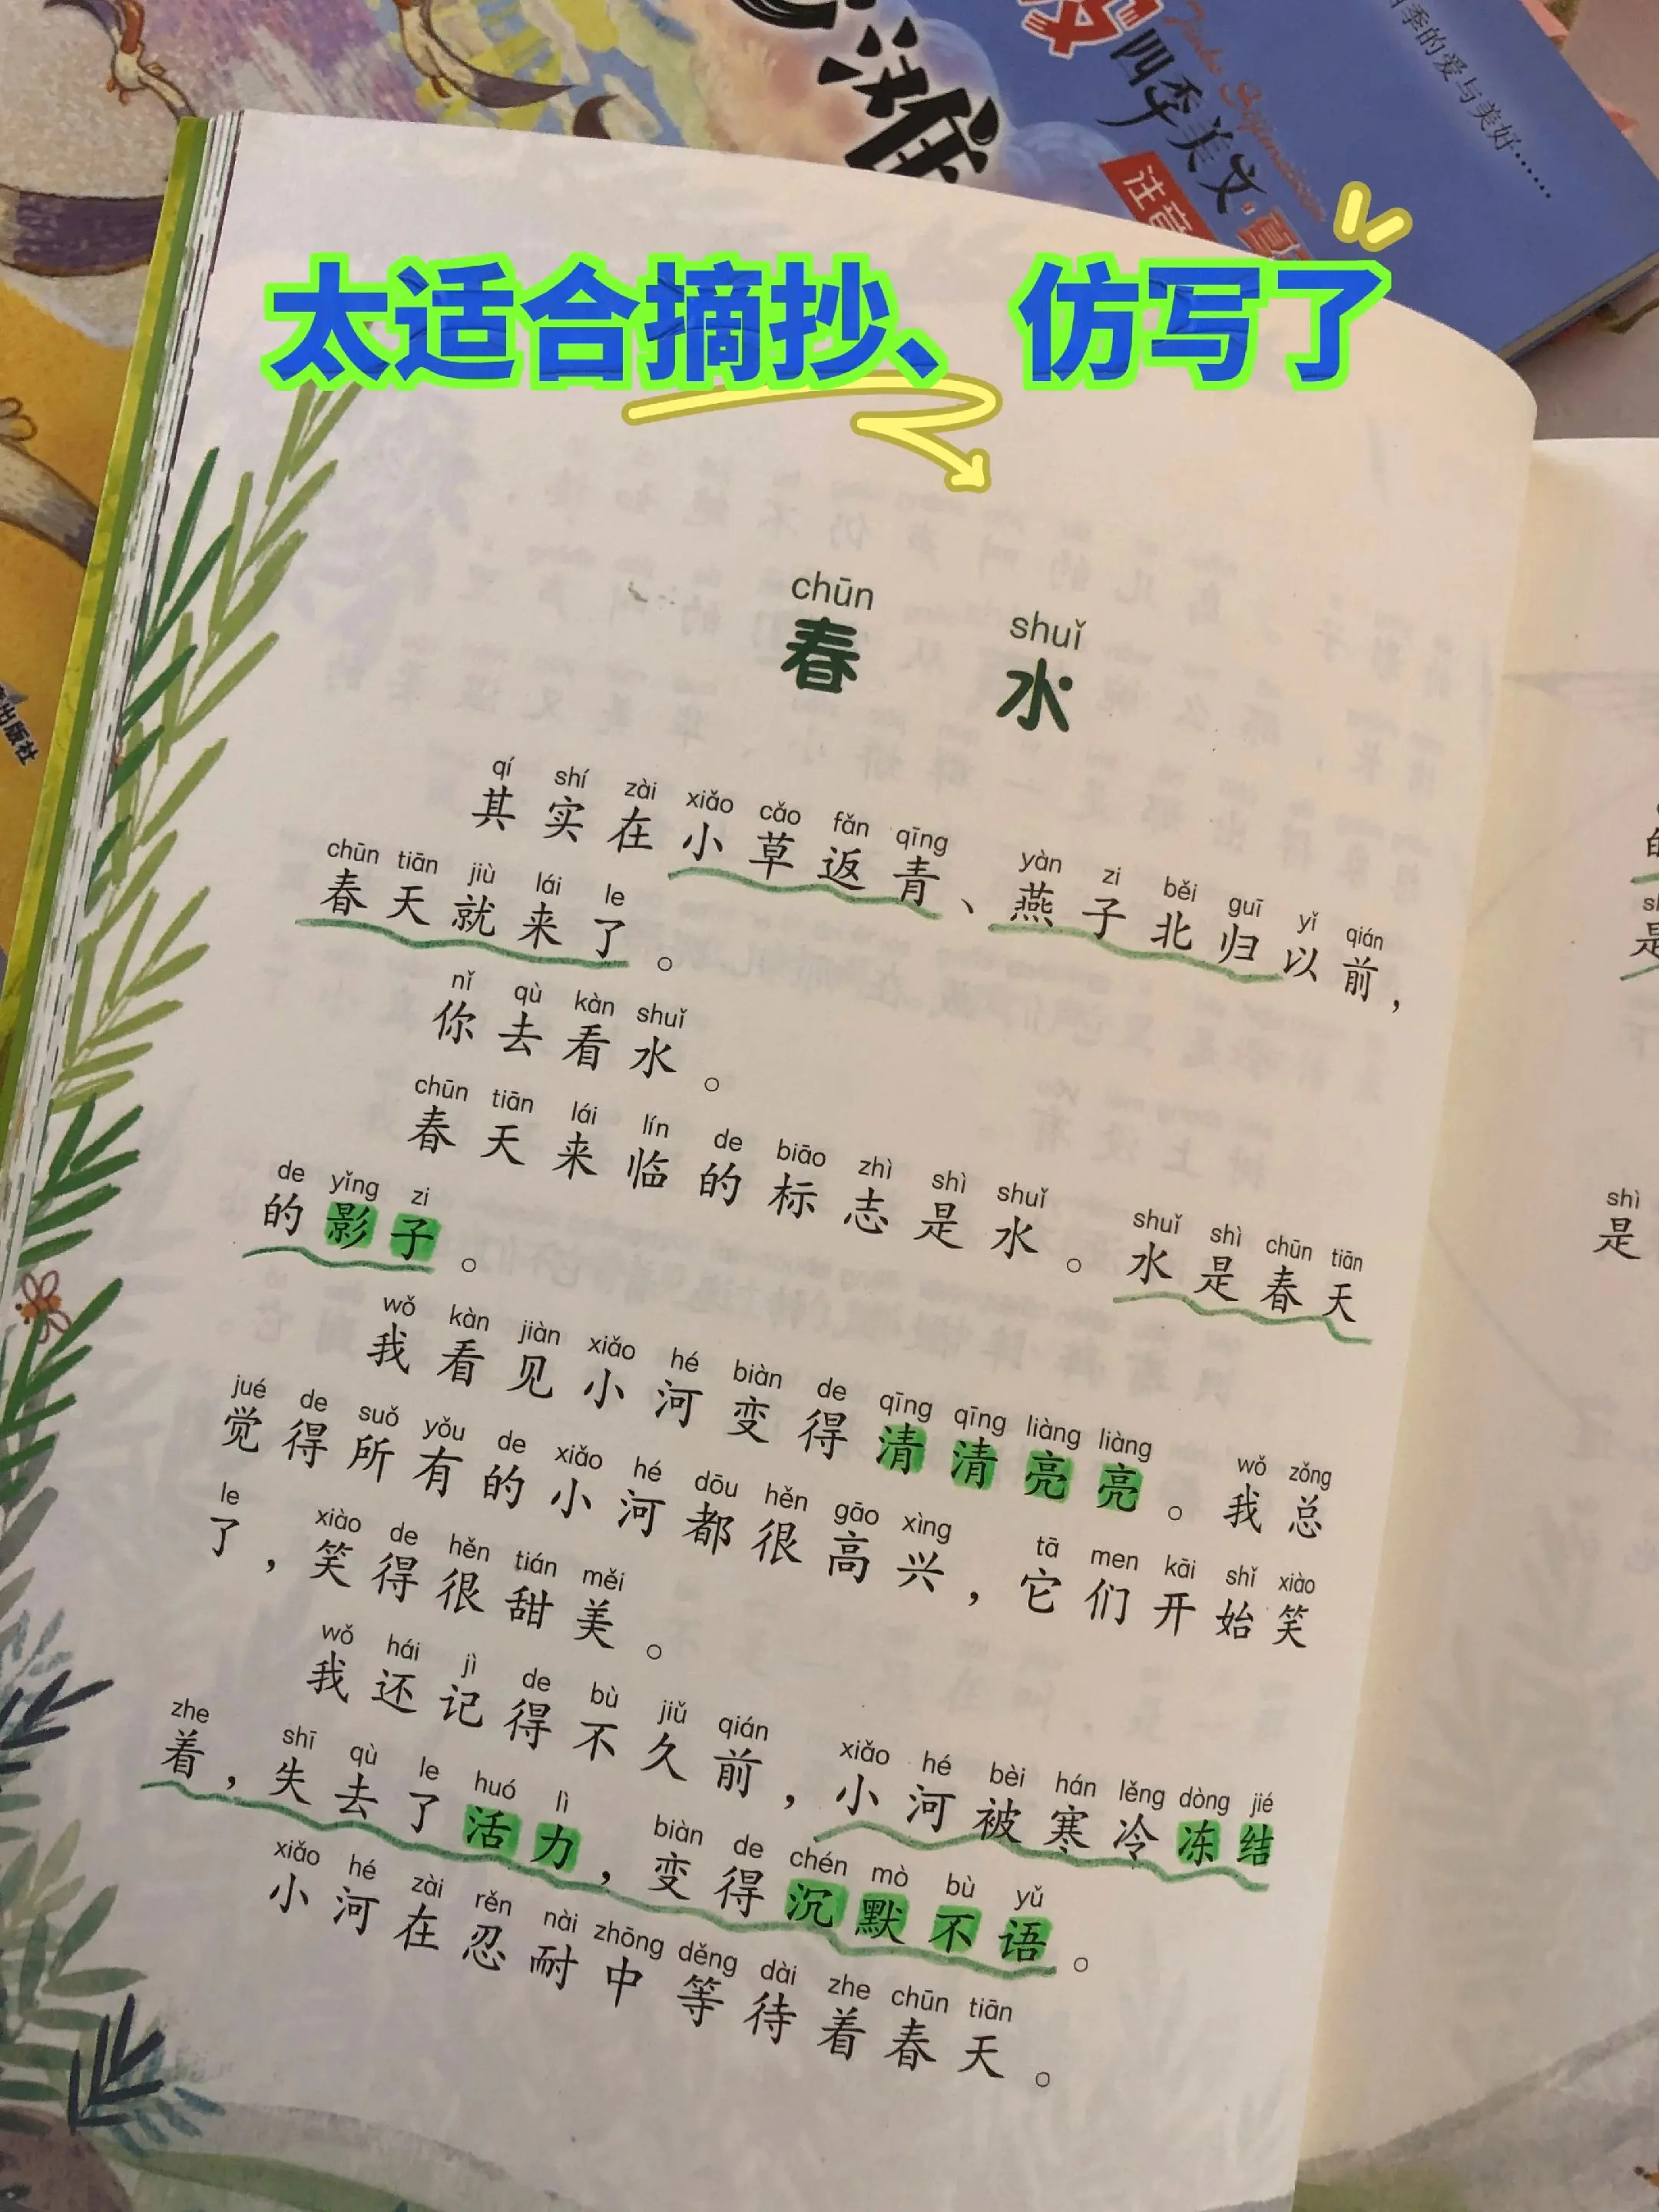 四季美文
注音
四季的爱与美好……
出版社
太适合摘抄、仿写了
chūn shuǐ
春水
qí shí zài xiǎo cǎo fǎn qīng yàn zi běi guī yǐ qián
其实在小草返青、燕子北归以前，
chūn tiān jiù lái le
春天就来了。
nǐ qù kàn shuǐ
你去看水。
chūn tiān lái lín de biāo zhì shì shuǐ shuǐ shì chūn tiān
春天来临的标志是水。水是春天
de yǐng zi
的影子。
wǒ kàn jiàn xiǎo hé biàn de qīng qīng liàng liàng wǒ zǒng
我看见小河变得清清亮亮。我总
jué de suǒ yǒu de xiǎo hé dōu hěn gāo xìng tā men kāi shǐ xiào
觉得所有的小河都很高兴，它们开始笑
le xiào de hěn tián měi
了，笑得很甜美。
wǒ hái jì de bù jiǔ qián xiǎo hé bèi hán lěng dòng jié
我还记得不久前，小河被寒冷冻结
zhe shī qù le huó lì biàn de chén mò bù yǔ
着，失去了活力，变得沉默不语。
xiǎo hé zài rěn nài zhōng děng dài zhe chūn tiān
小河在忍耐中等待着春天。
shì
是